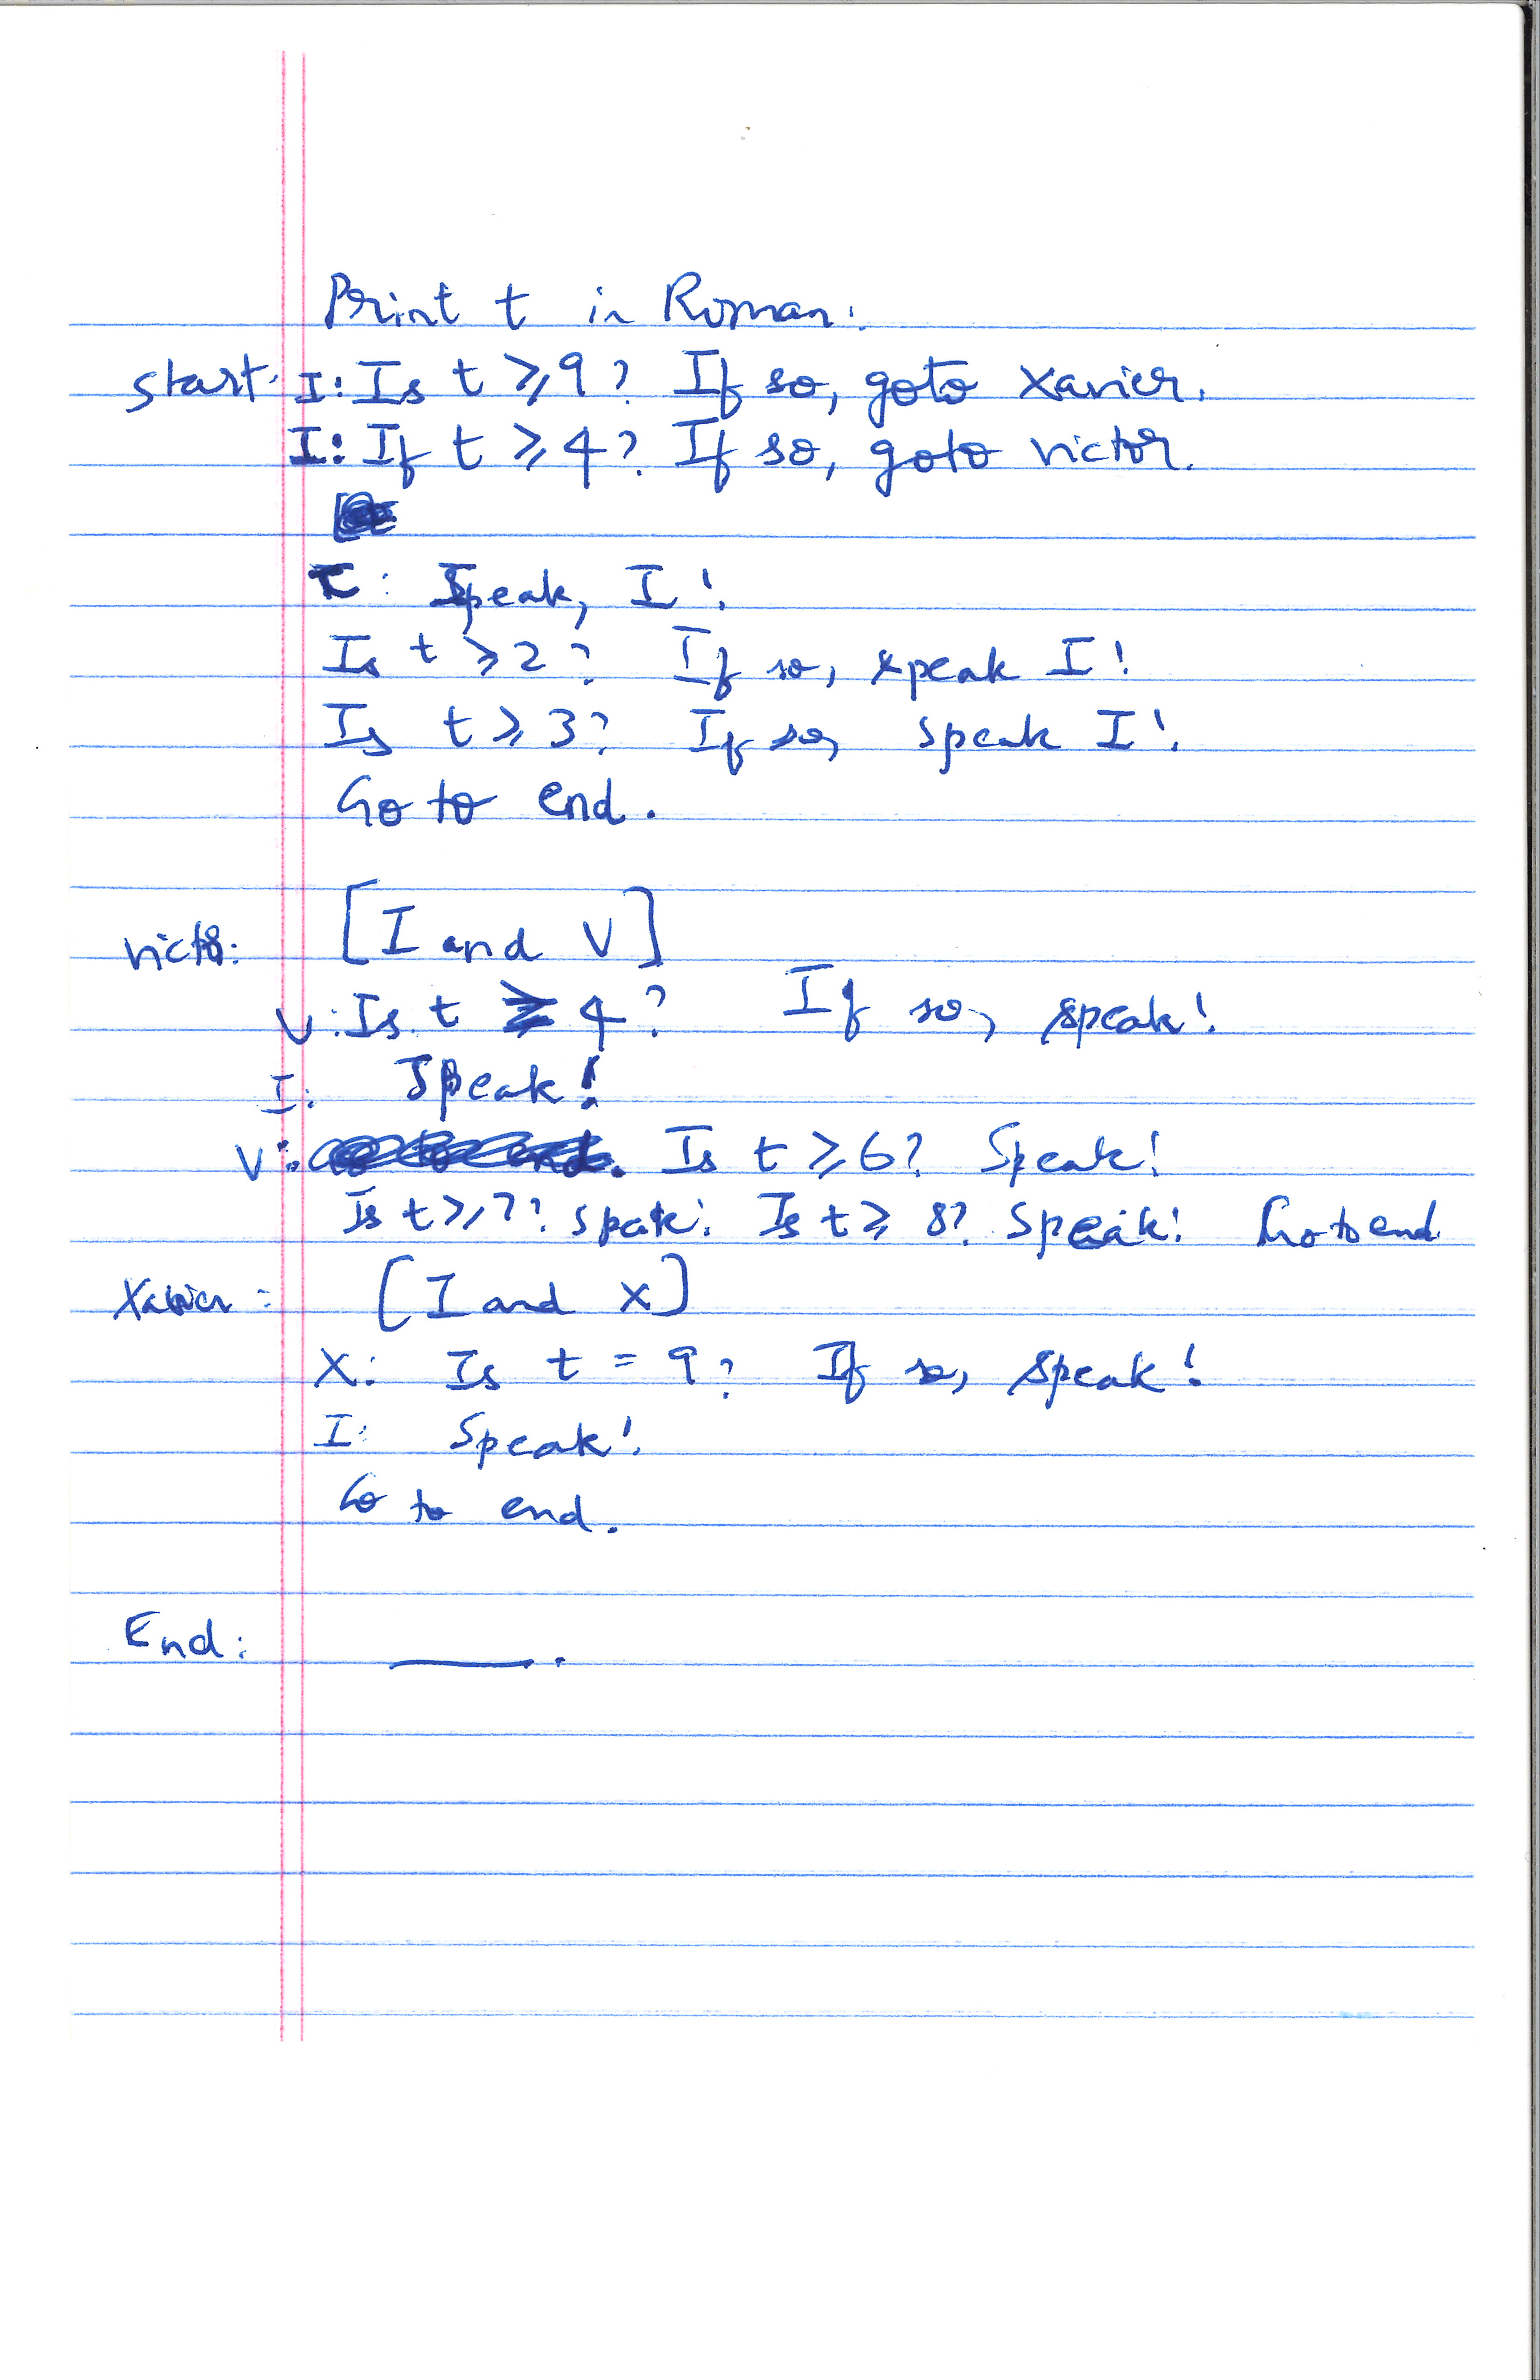 Print t in Roman.
Start: I: Is t ⩾ 9? If so, goto Xavier.
I: If t ⩾ 4? If so, goto Victor.
I: Speak, I!
Is t ⩾ 2? If so, speak I!
Is t ⩾ 3? If so, speak I!
Go to end.
Victor: [I and V]
V: Is t 4? If so, speak!
I: Speak!
V: Is t ⩾ 6? Speak!
Is t ⩾ 7? Speak! Is t ⩾ 8? Speak! Go to end
Xavier: [I and X]
X: Is t = 9? If so, speak!
I: Speak!
Go to end.
End: ____.